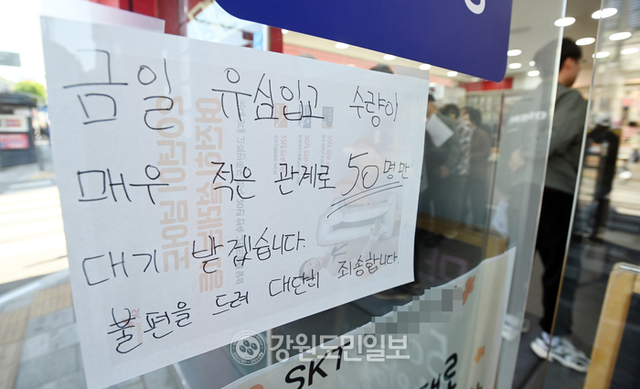 금일 유심입고 수량이
매우 적은 관계로 50명만
대기 받겠습니다.
불편을 드려 대단히 죄송합니다.
강원도민일보
SKT